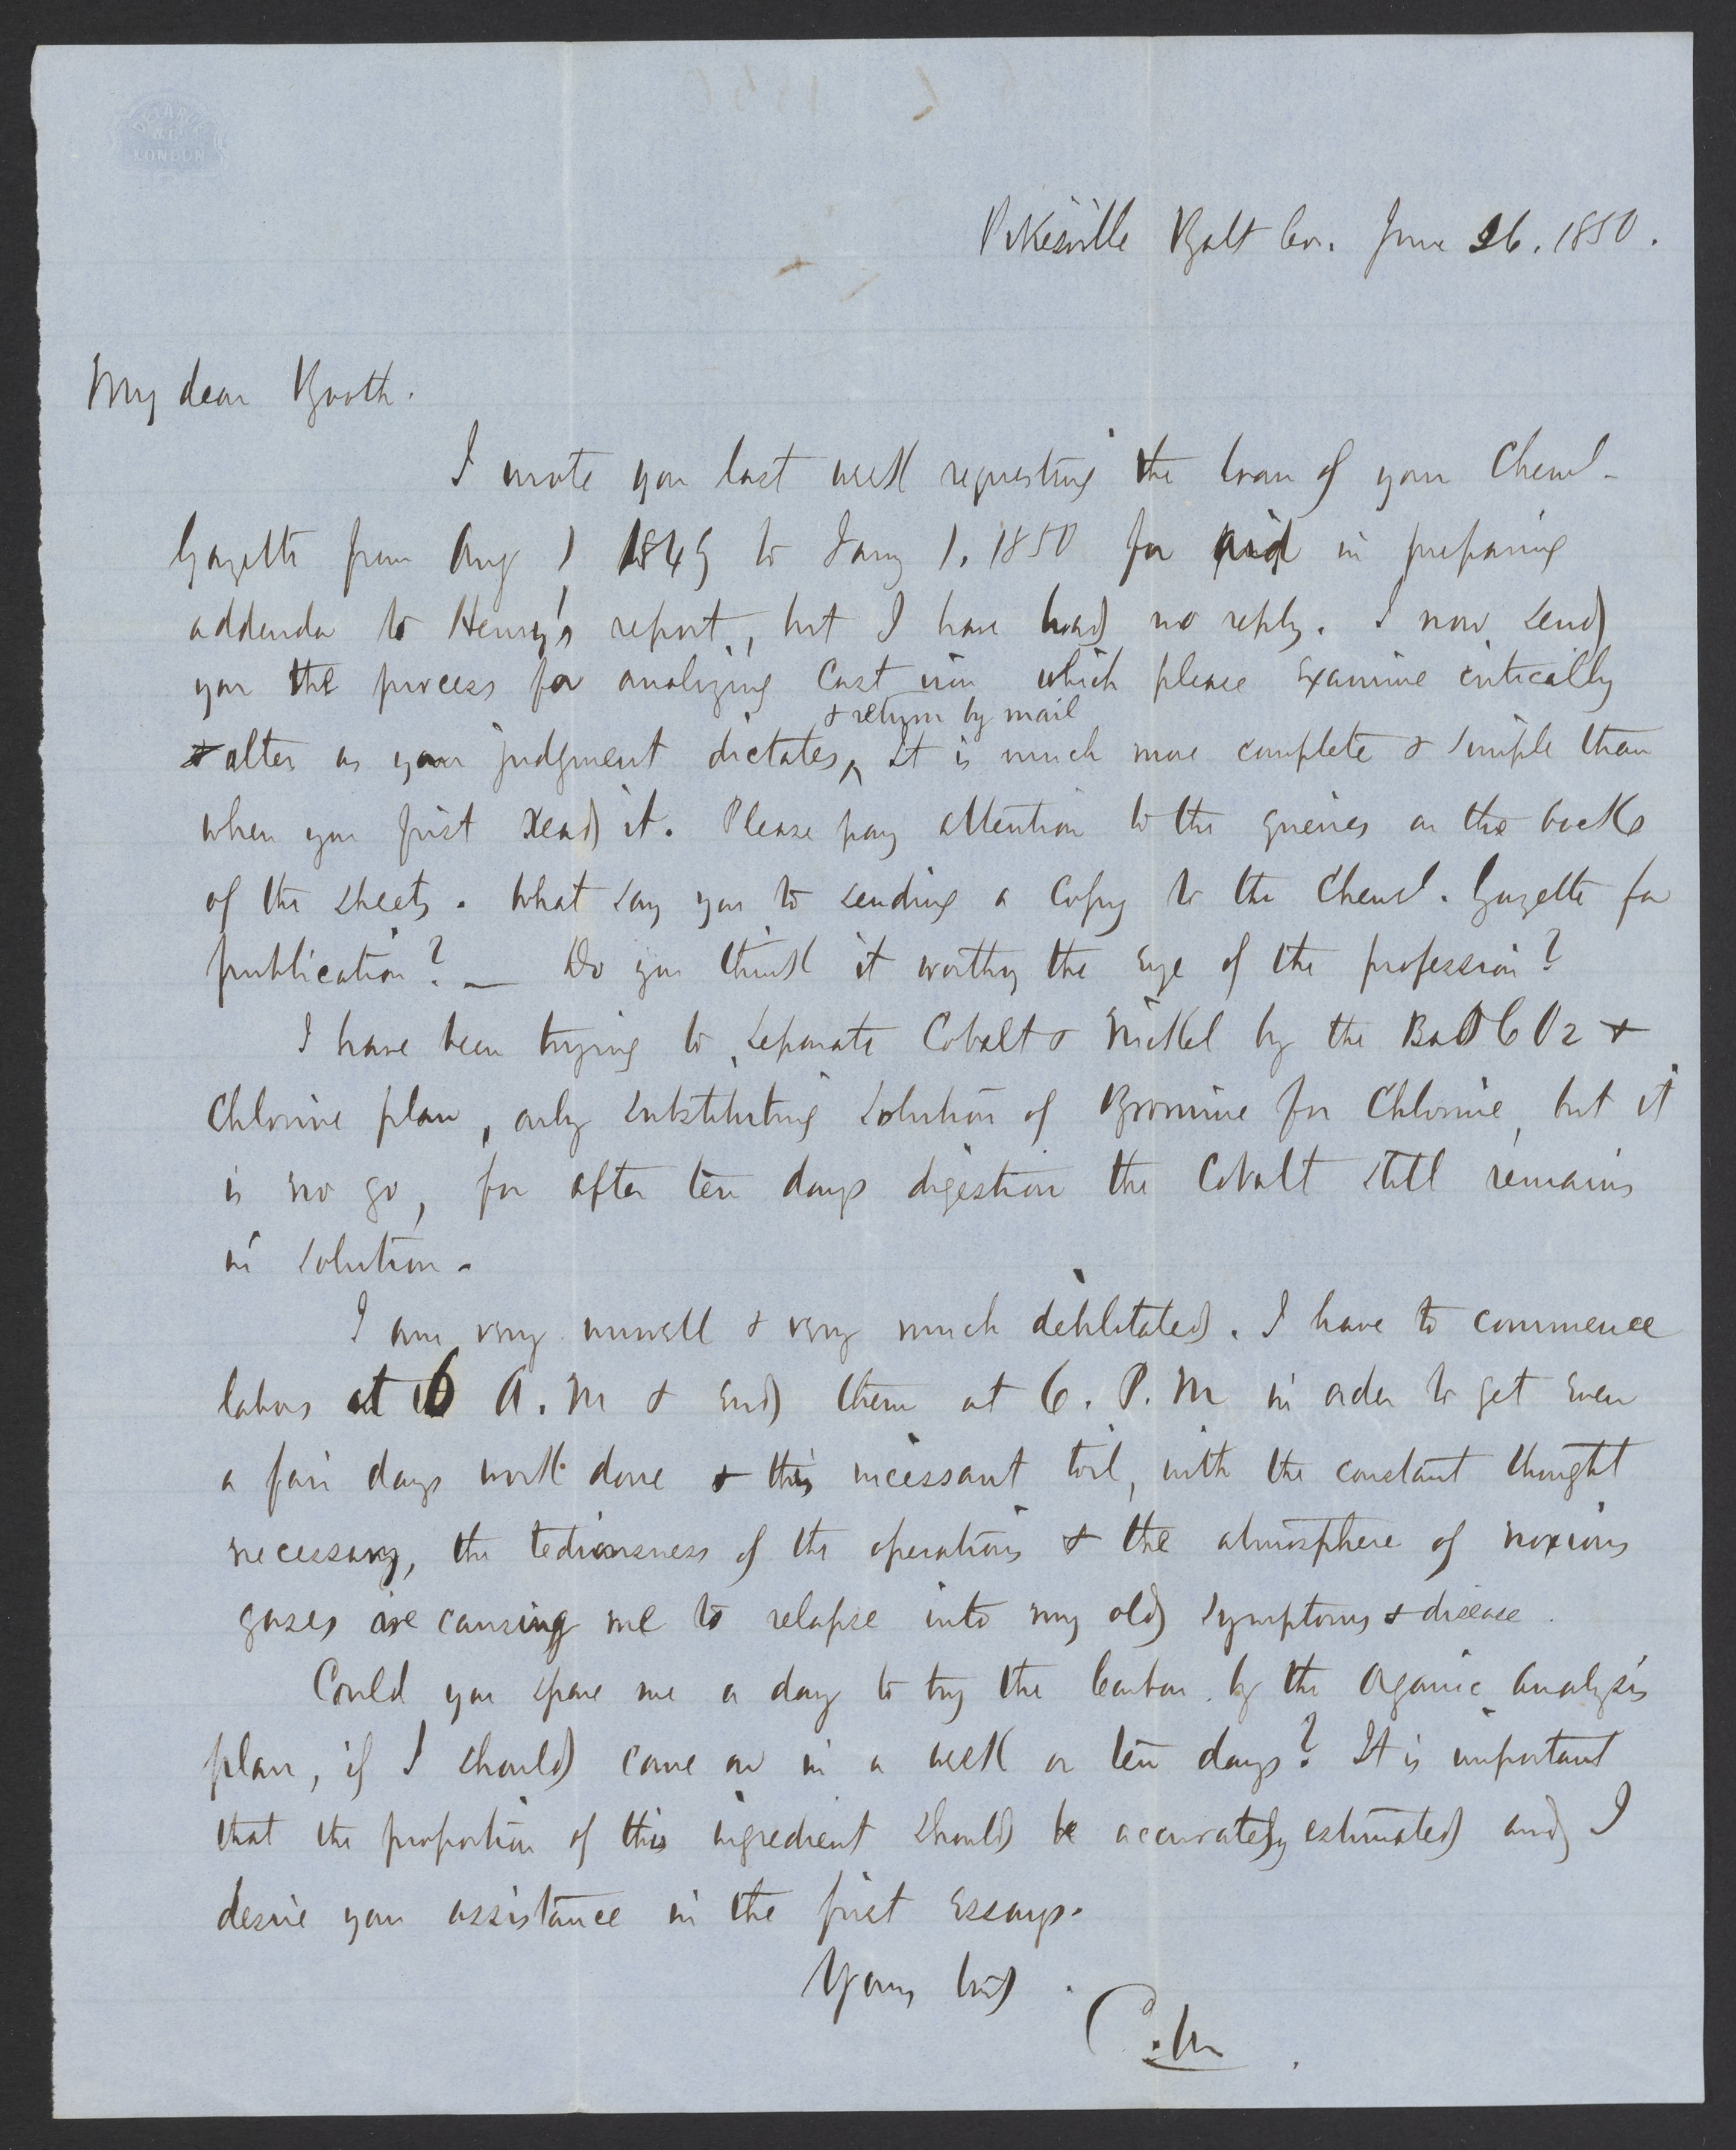 DE LA RUE
& CO
LONDON
Pikesville Balt Co. June 26. 1850.
My dear Booth.
I wrote you last week requesting the loan of your Cheml.
Gazette from Aug 1, 1849 to Jany 1. 1850 for aid in preparing
addenda to Henry's report, but I have had no reply. I now send
you the process for analizing Cast iron which please examine critically
& return by mail
& alter as your judgment dictates, It is much more complete & simple than
when you first read it. Please pay attention to the queries on the backs
of the sheets. What say you to sending a Copy to the Cheml. Gazette for
publication? — Do you think it worthy the eye of the profession?
I have been trying to separate Cobalt & Nickel by the BaO CO2 &
Chlorine plan, only substituting solution of Bromine for Chlorine, but it
is no go, for after ten days digestion the Cobalt still remains
in solution.
I am very unwell & very much debilitated. I have to commence
labors at 6 A.M & end them at 6. P.M in order to get even
a fair days work done & this incessant toil, with the constant thought
necessary, the tediousness of the operations & the atmosphere of noxious
gases are causing me to relapse into my old symptoms & disease.
Could you spare me a day to try the Carbon by the Organic Analysis
plan, if I should come on in a week or ten days? It is important
that the proportion of this ingredient should be accurately estimated and I
desire your assistance in the first Essays.
Yours
C.M